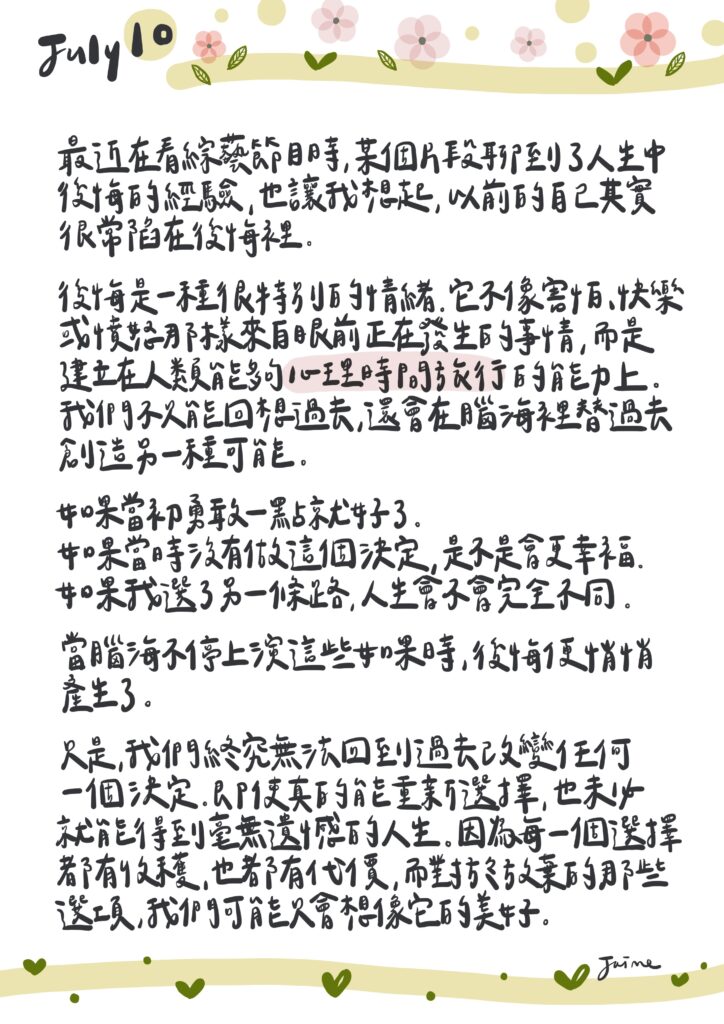 July 10
最近在看綜藝節目時,某個片段聊到了人生中
後悔的經驗,也讓我想起,以前的自己其實
很常陷在後悔裡。
後悔是一種很特別的情緒.它不像害怕、快樂
或憤怒那樣來自眼前正在發生的事情,而是
建立在人類能夠心理時間旅行的能力上。
我們不只能回想過去,還會在腦海裡替過去
創造另一種可能。
如果當初勇敢一點就好了.
如果當時沒有做這個決定,是不是會更幸福.
如果我選了另一條路,人生會不會完全不同。
當腦海不停上演這些如果時,後悔便悄悄
產生了。
只是,我們終究無法回到過去改變任何
一個決定.即使真的能重新選擇,也未必
就能得到毫無遺憾的人生。因為每一個選擇
都有收穫,也都有代價,而對於放棄的那些
選項,我們可能只會想像它的美好。
Jaime